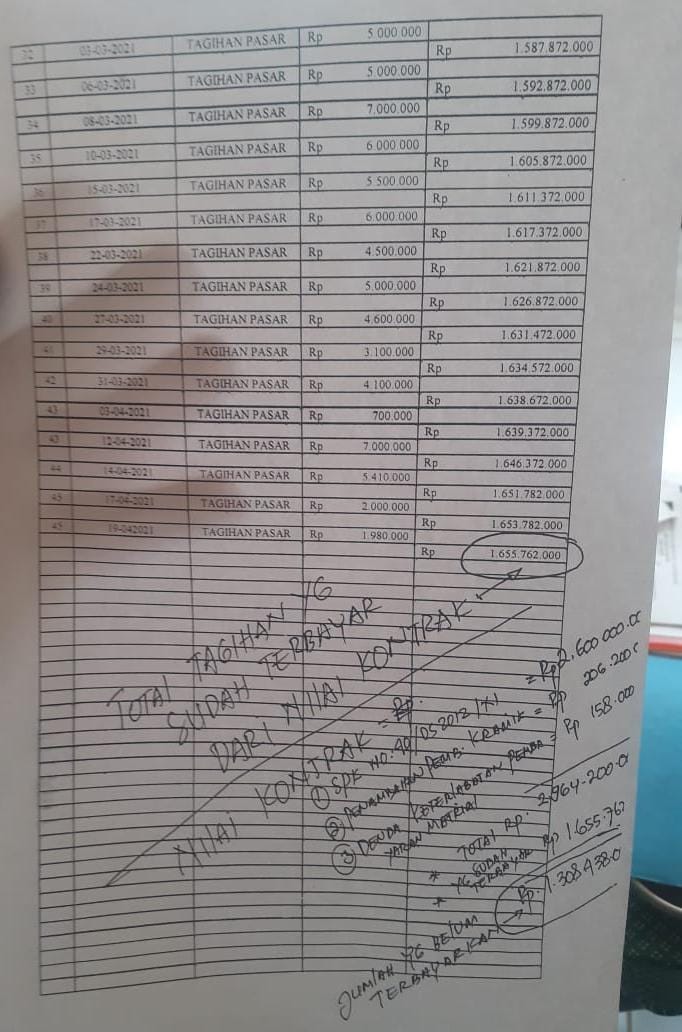 32 03-03-2021 TAGIHAN PASAR Rp 5 000 000
Rp 1.587.872.000
33 06-03-2021 TAGIHAN PASAR Rp 5.000.000
Rp 1.592.872.000
34 08-03-2021 TAGIHAN PASAR Rp 7.000.000
Rp 1.599.872.000
35 10-03-2021 TAGIHAN PASAR Rp 6 000 000
Rp 1.605.872.000
36 15-03-2021 TAGIHAN PASAR Rp 5 500.000
Rp 1.611.372.000
37 17-03-2021 TAGIHAN PASAR Rp 6.000.000
Rp 1.617.372.000
38 22-03-2021 TAGIHAN PASAR Rp 4.500.000
Rp 1.621.872.000
39 24-03-2021 TAGIHAN PASAR Rp 5.000.000
Rp 1.626.872.000
40 27-03-2021 TAGIHAN PASAR Rp 4.600.000
Rp 1.631.472.000
41 29-03-2021 TAGIHAN PASAR Rp 3.100.000
Rp 1.634.572.000
42 31-03-2021 TAGIHAN PASAR Rp 4.100.000
Rp 1.638.672.000
43 03-04-2021 TAGIHAN PASAR Rp 700.000
Rp 1.639.372.000
43 12-04-2021 TAGIHAN PASAR Rp 7.000.000
Rp 1.646.372.000
44 14-04-2021 TAGIHAN PASAR Rp 5.410.000
Rp 1.651.782.000
45 17-04-2021 TAGIHAN PASAR Rp 2.000.000
Rp 1.653.782.000
45 19-042021 TAGIHAN PASAR Rp 1.980.000
Rp 1.655.762.000
TOTAL TAGIHAN YG
SUDAH TERBAYAR
DARI NILAI KONTRAK
NILAI KONTRAK = Rp.
① SPK NO: 49/DS2012/XI = Rp 2.600 000.00
② PENAMBAHAN PEMB. KRAMIK = Rp 206.200
③ DENDA KETERLABATAN PEMBA = Rp 158.000
YARAN METRIAL
* TOTAL Rp. 2.964.200.0
* YG SUDAH
TERBAYAR Rp 1.655.762
Rp. 1.308.438.0
JUMLAH YG BELUM
TERBAYARKAN